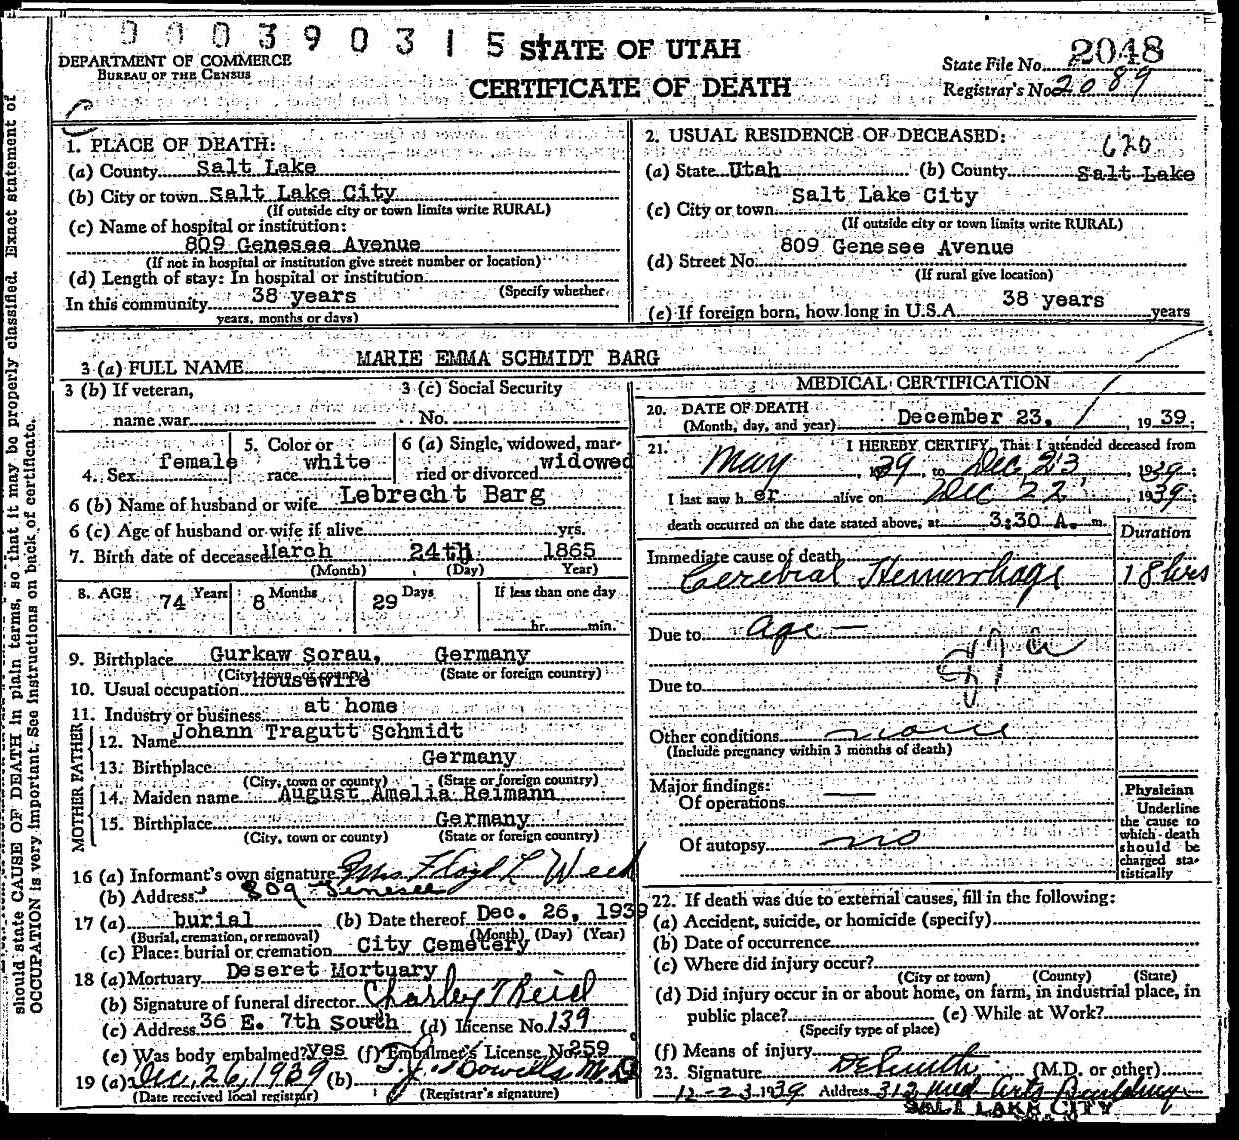 0 0 0 3 9 0 3 1 5
STATE OF UTAH
CERTIFICATE OF DEATH
DEPARTMENT OF COMMERCE
BUREAU OF THE CENSUS
State File No. 2048
Registrar's No. 2089
should state CAUSE OF DEATH in plain terms, so that it may be properly classified. Exact statement of
OCCUPATION is very important. See instructions on back of certificate.
1. PLACE OF DEATH:
(a) County Salt Lake
(b) City or town Salt Lake City
(If outside city or town limits write RURAL)
(c) Name of hospital or institution:
809 Genesee Avenue
(If not in hospital or institution give street number or location)
(d) Length of stay: In hospital or institution
(Specify whether
In this community 38 years
years, months or days)
2. USUAL RESIDENCE OF DECEASED:
620
(a) State Utah (b) County Salt Lake
(c) City or town Salt Lake City
(If outside city or town limits write RURAL)
(d) Street No. 809 Genesee Avenue
(If rural give location)
(e) If foreign born, how long in U.S.A. 38 years years
3 (a) FULL NAME MARIE EMMA SCHMIDT BARG
3 (b) If veteran,
name war
3 (c) Social Security
No.
4. Sex female
5. Color or
race white
6 (a) Single, widowed, mar-
ried or divorced widowed
6 (b) Name of husband or wife Lebrecht Barg
6 (c) Age of husband or wife if alive yrs.
7. Birth date of deceased March 24th 1865
(Month) (Day) Year)
8. AGE 74 Years 8 Months 29 Days If less than one day
hr. min.
9. Birthplace Gurkaw Sorau, Germany
(City, town or county) (State or foreign country)
10. Usual occupation housewife
11. Industry or business at home
FATHER
12. Name Johann Tragutt Schmidt
13. Birthplace Germany
(City, town or county) (State or foreign country)
MOTHER
14. Maiden name August Amelia Reimann
15. Birthplace Germany
(City, town or county) (State or foreign country)
16 (a) Informant's own signature Mrs. Floyd L Weed
(b) Address 809 Genesee
17 (a) burial (b) Date thereof Dec. 26, 1939
(Burial, cremation, or removal) (Month) (Day) (Year)
(c) Place: burial or cremation City Cemetery
18 (a) Mortuary Deseret Mortuary
(b) Signature of funeral director Charley T Reid
(c) Address 36 E. 7th South (d) License No. 139
(e) Was body embalmed? yes (f) Embalmer's License No. 259
19 (a) Dec. 26, 1939 (b) T.J. Howells M.D.
(Date received local registrar) (Registrar's signature)
MEDICAL CERTIFICATION
20. DATE OF DEATH
(Month, day, and year) December 23, 1939;
21. I HEREBY CERTIFY, That I attended deceased from
May 1939 to Dec 23 1939;
I last saw her alive on Dec 22 1939;
death occurred on the date stated above, at 3:30 A. m.
Duration
Immediate cause of death
Cerebral Hemorrhage 18 hrs
Due to age —
Due to
Other conditions none
(Include pregnancy within 3 months of death)
Major findings:
Of operations —
Of autopsy no
Physician
Underline
the cause to
which death
should be
charged sta-
tistically
22. If death was due to external causes, fill in the following:
(a) Accident, suicide, or homicide (specify)
(b) Date of occurrence
(c) Where did injury occur?
(City or town) (County) (State)
(d) Did injury occur in or about home, on farm, in industrial place, in
public place? (e) While at Work?
(Specify type of place)
(f) Means of injury
23. Signature (M.D. or other)
12-23-1939 Address 312 Med Arts Building
SALT LAKE CITY